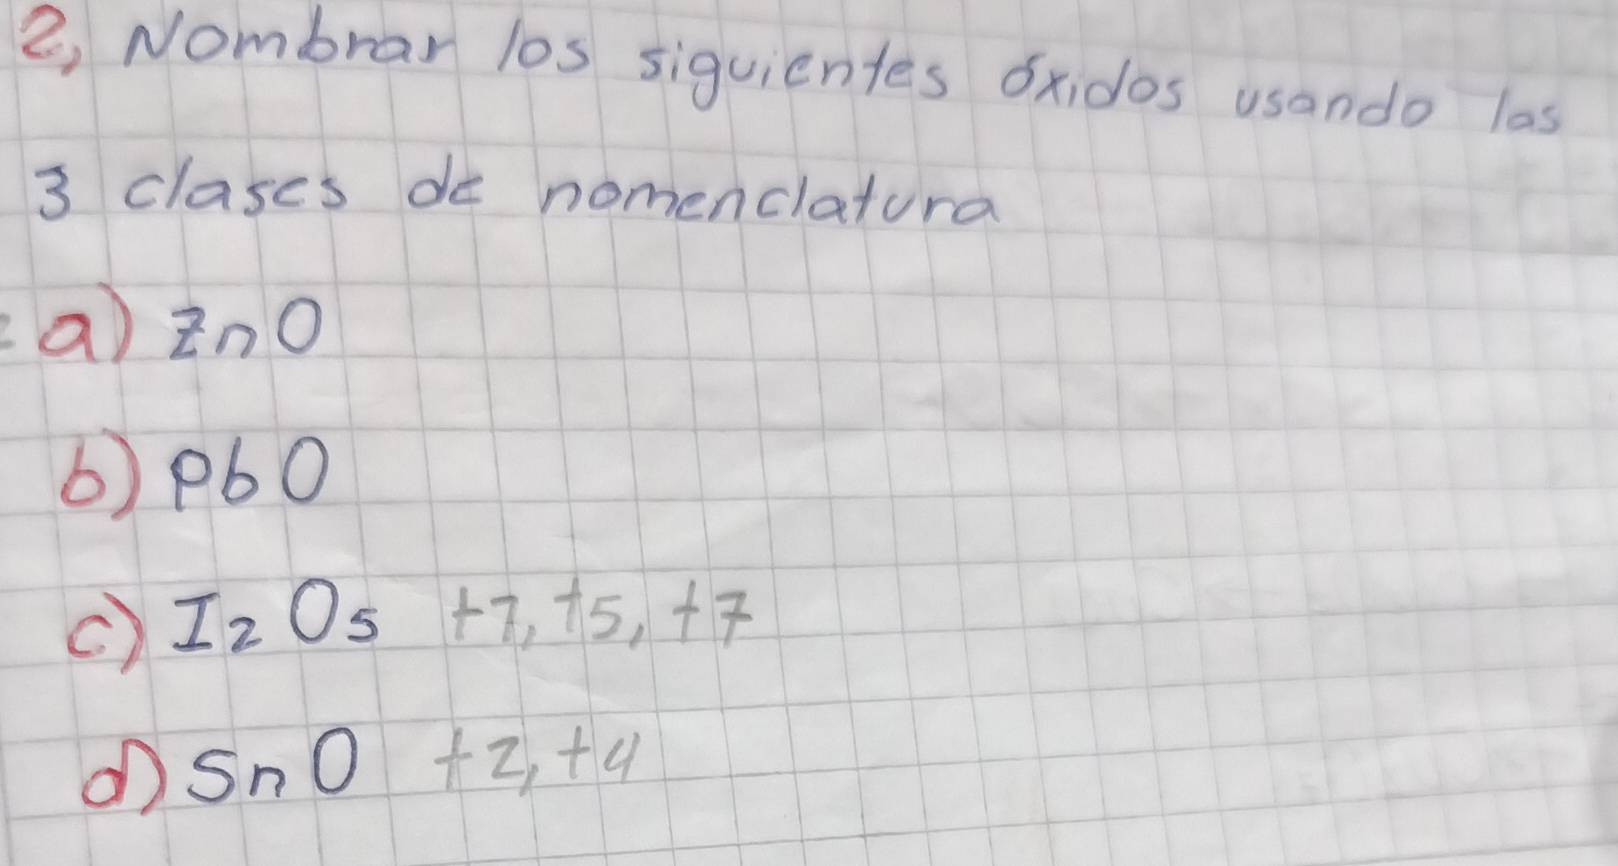 2, Nombrar los siguientes óxidos usando las
3 clases de nomenclatura
a) ZnO
b) PbO
c) I2O5 +7, +5, +7
d) SnO +2, +4